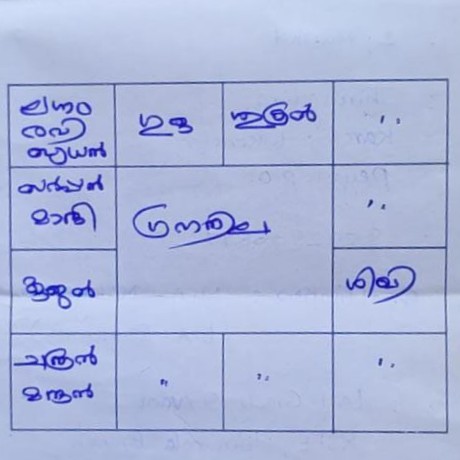 ലഗ്നം
രവി
ബുധൻ
ഗുരു
ശുക്രൻ
"
സർപ്പൻ
മാന്ദി
ഗ്രഹനില
"
കുജൻ
ശിഖി
ചന്ദ്രൻ
മന്ദൻ
"
"
"